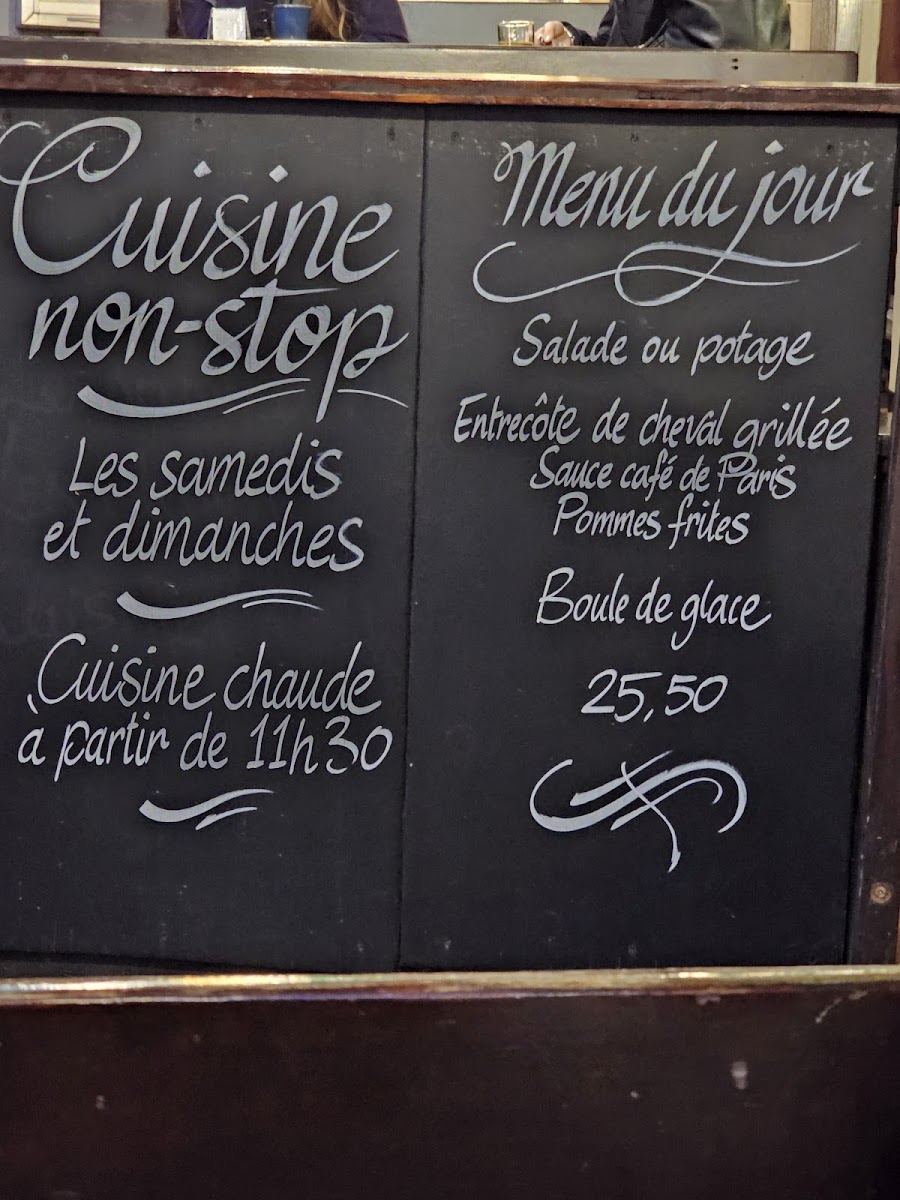 Cuisine
non-stop
Les samedis
et dimanches
Cuisine chaude
à partir de 11h30
Menu du jour
Salade ou potage
Entrecôte de cheval grillée
Sauce café de Paris
Pommes frites
Boule de glace
25,50